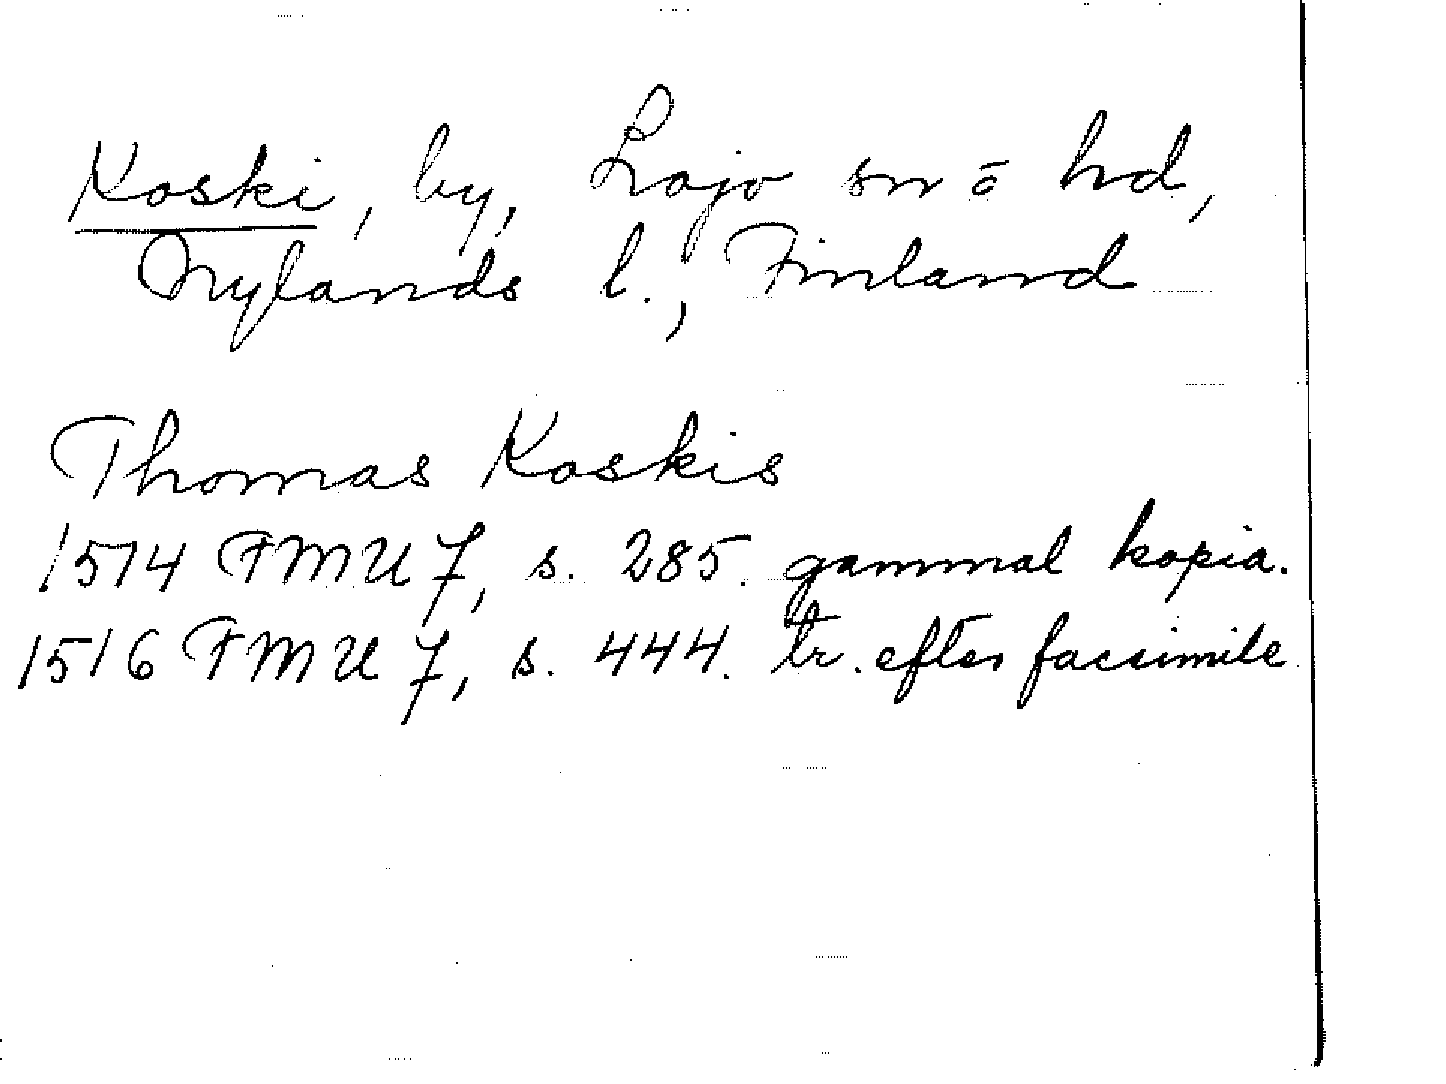 Koski, by, Lojo sn o hd,
Nylands l., Finland
Thomas Koskis
1514 FMU 7, s. 285. gammal kopia.
1516 FMU 7, s. 444. tr. efter facsimile.